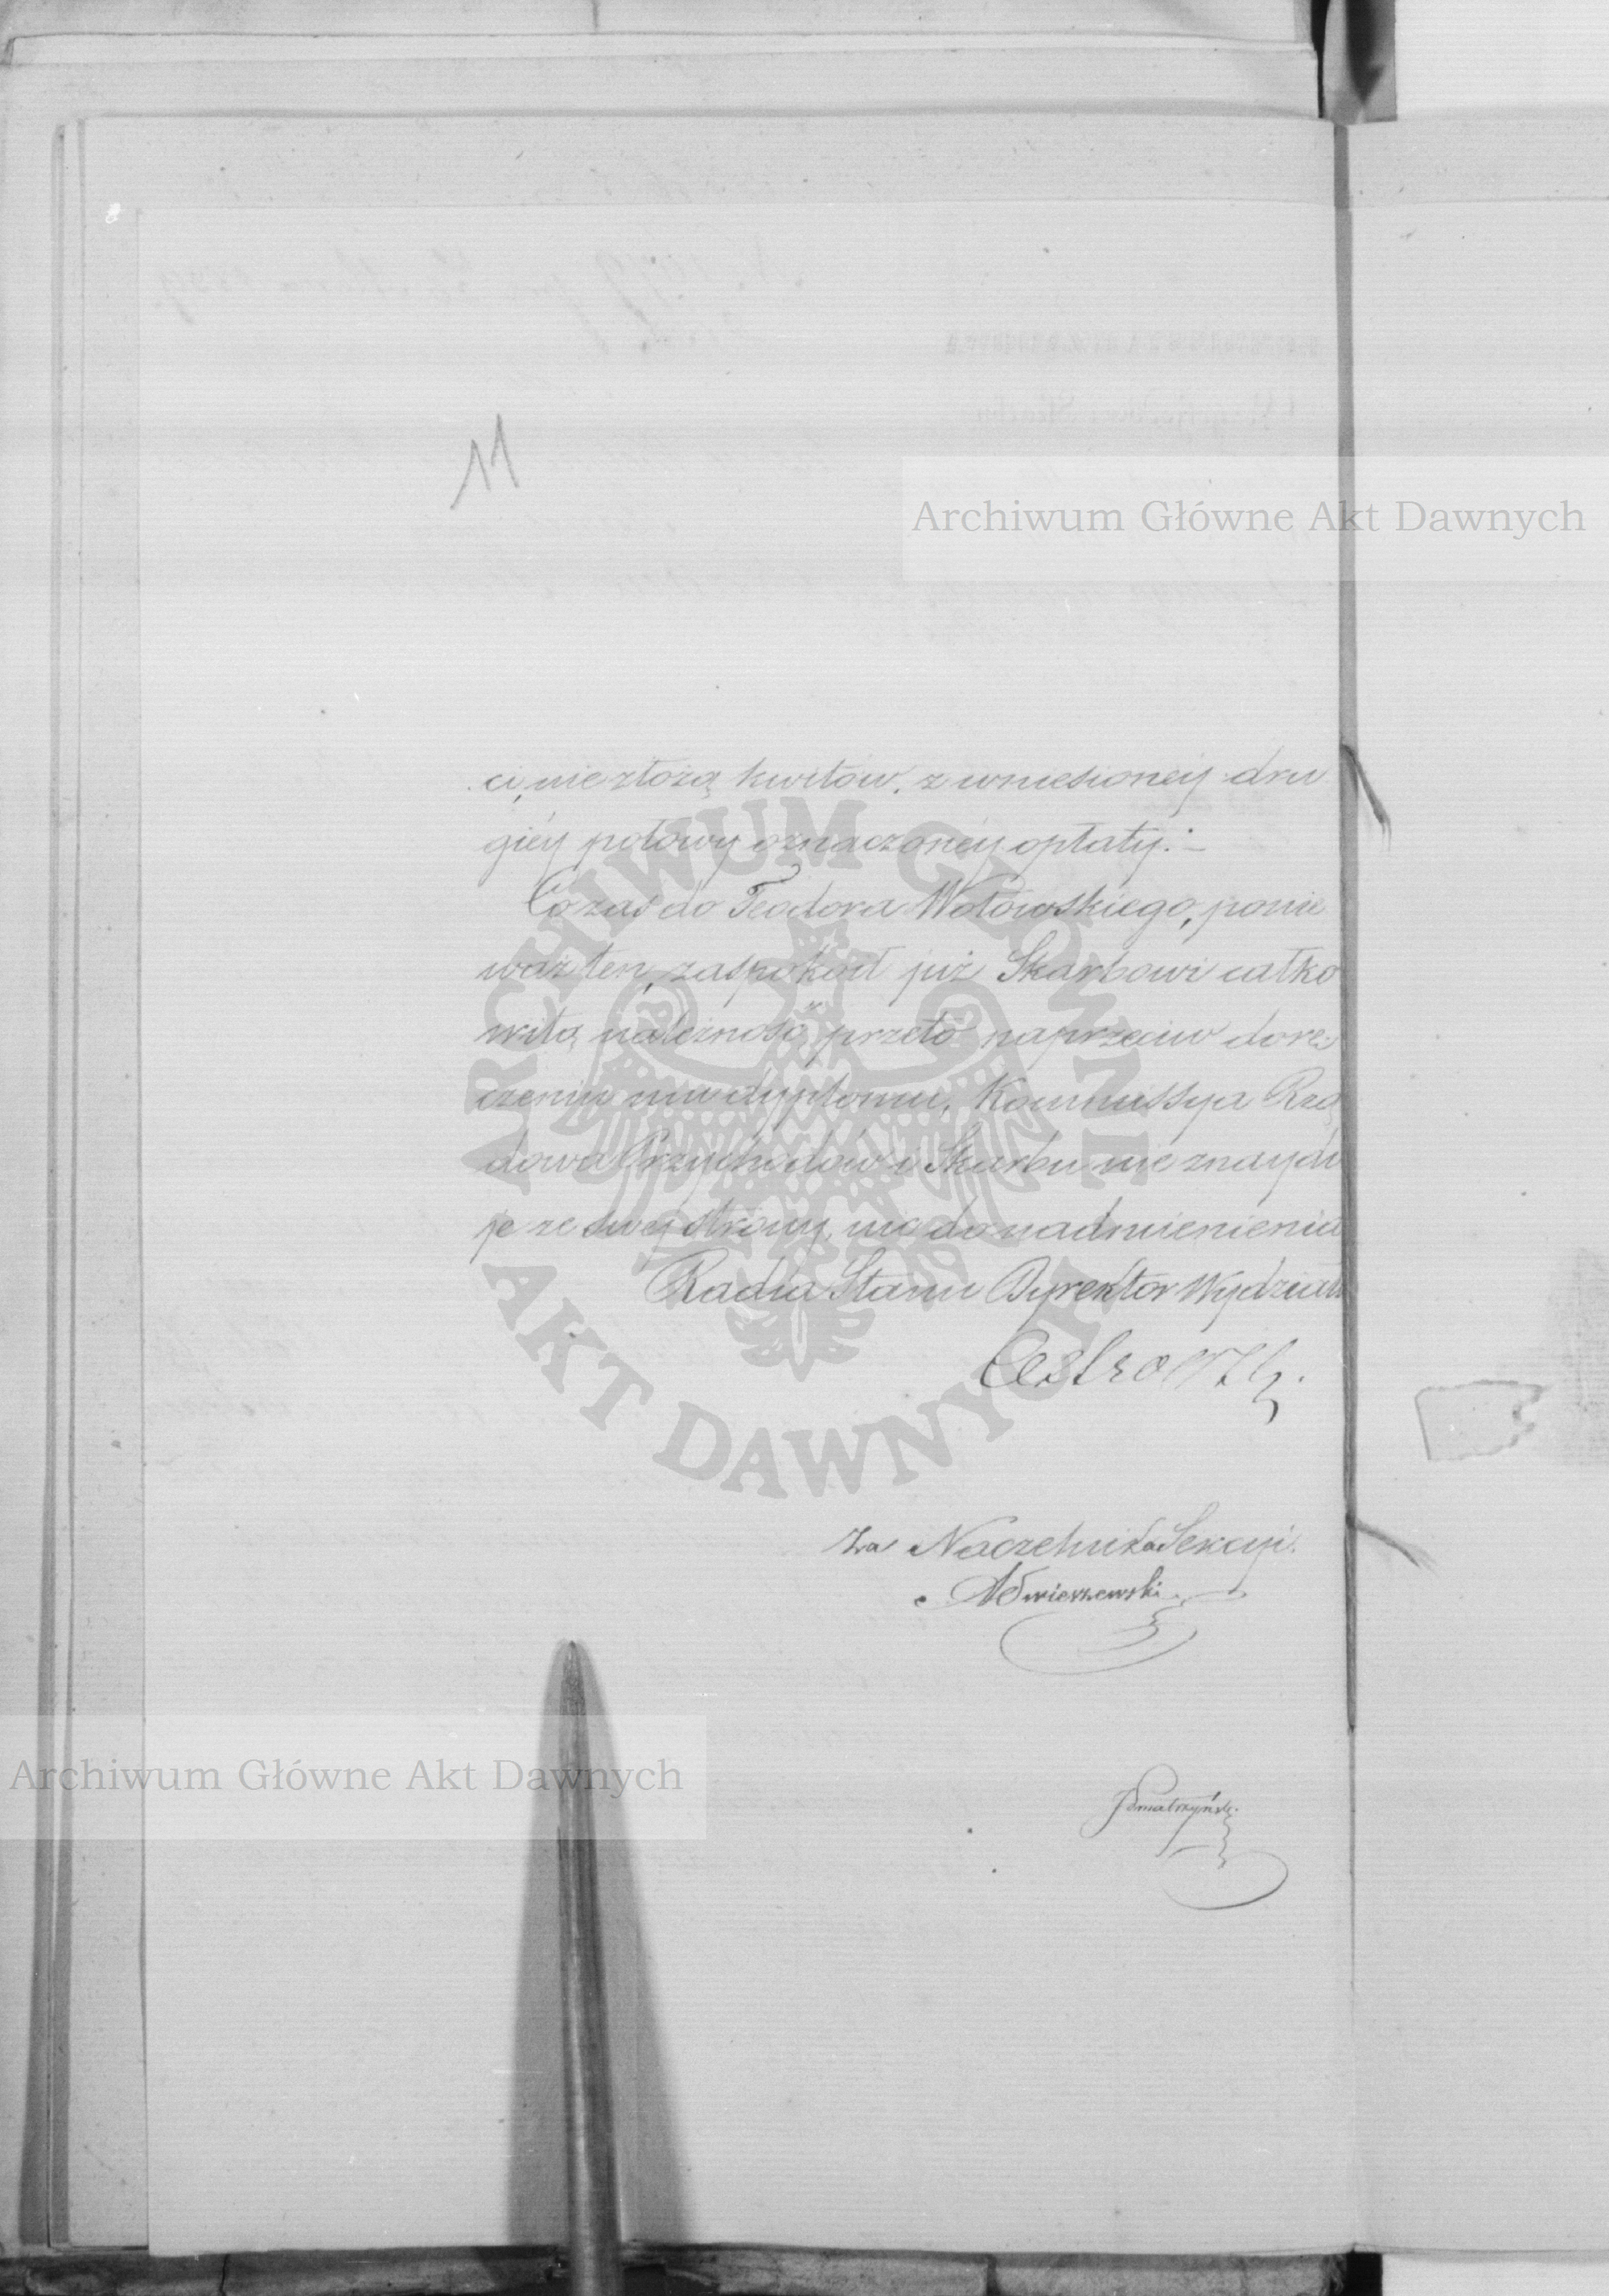 11
Archiwum Główne Akt Dawnych
ci, nie złożą kwitów, z wniesioney dru
giéy połowy oznaczonéy opłaty.–
Co zaś do Teodora Wołowskiego, ponie
waż ten, zaspokoił już Skarbowi całko
witą należność, przeto naprzeciw dorę
czeniu mu dyplomu, Kommissya Rzą
dowa Przychodów i Skarbu nie znaydu
je ze swey strony, nic do nadmienienia
Radca Stanu Dyrektor Wydziału
ARCHIWUM GŁÓWNE
AKT DAWNYCH
Za Naczelnika Sekcyi.
Archiwum Główne Akt Dawnych